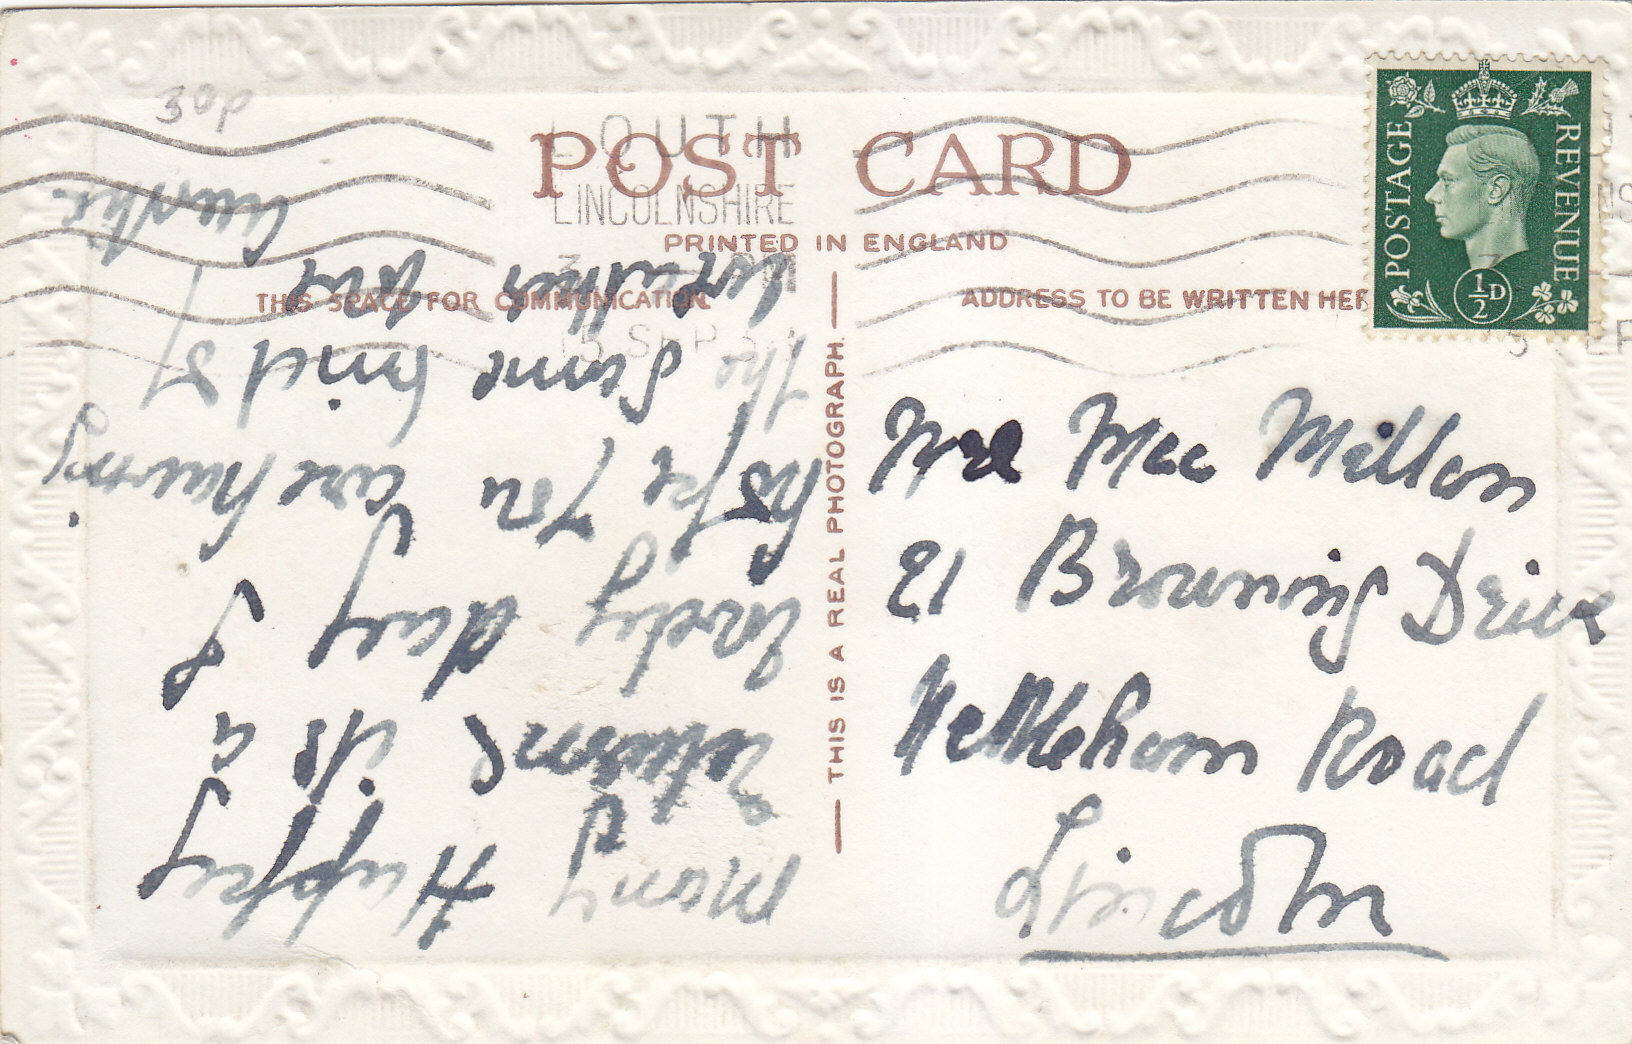 30p
POST CARD
PRINTED IN ENGLAND
THIS SPACE FOR COMMUNICATION
ADDRESS TO BE WRITTEN HER
LOUTH
LINCOLNSHIRE
SEP
POSTAGE
REVENUE
½D
THIS IS A REAL PHOTOGRAPH.
Many Happy
Returns its a
lovely day I
hope you are having
the same kind of
weather
Mrs Mac Millan
21 Browning Drive
Nettleham Road
Lincoln